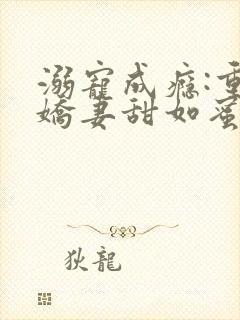 溺寵成癮:重
嬌妻甜如蜜
狄龍